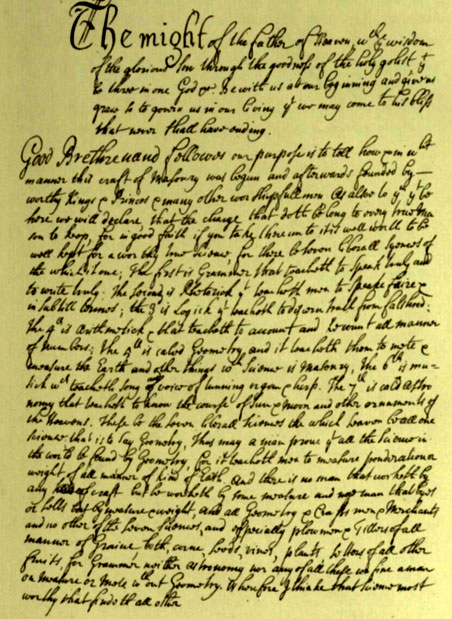 The might of the father of Heaven, wth ye wisdom
of the glorious son through the goodness of the holy ghost yt
be three in one God & be with us at our beginning and give us
grace so to govern us in our living yt we may come to his bliss
that never shall have ending.
Good Brethren and Fellowes our purpose is to tell how & in wht
manner this craft of Masonry was begun and afterwards founded by
worthy Kings & Princes & many other worshipfull men As allso to ym yt be
here we will declare that the charge that doth belong to every true Ma
son to keep, for in good faith if you take thereunto it is well worth to be
well kept for a worthy science, for there be seven liberall syences of
the which it is one; The first is Grammer that teacheth to speak truly and
to write truly. The second is Rhetorick yt teacheth men to speake faire &
in subtill termes; the 3d is Logick yt teacheth to discern truth from falshood.
The 4th is Arithmetick & that teacheth to account and count all manner
of numbers; The is called Geometry, and it teacheth them to mete &
measure the Earth and other things wch Science is Masonry; The 6th is mu-
sick wch teacheth song & voice of tunning organ & harp. The 7th is cald Astro
nomy that teacheth to know the course of sun & moon and other ornaments of
the Heavens. These be the seven liberall sciences the which seaven be all one
science that is to say Geometry, Thus may a man prove yt all the science in
the world be found by Geometry, for it teacheth men to measure ponderation &
weight of all manner of kind of Earth, And there is no man that worketh by
any craft but he worketh by some measure and no man that buyes
or sells but by measure & weight, and all Geometry & Craftsmen & Merchants
and no other of the seven sciences, and especially plowmen & Tillers of all
manner of Graine both, corne, seeds, vines, plants setters of all other
fruits, for Grammer neither Astronomy nor any of all these can fine a man
on measure or mete without Geometry. Wherefore I thinke that science most
worthy that findeth all other